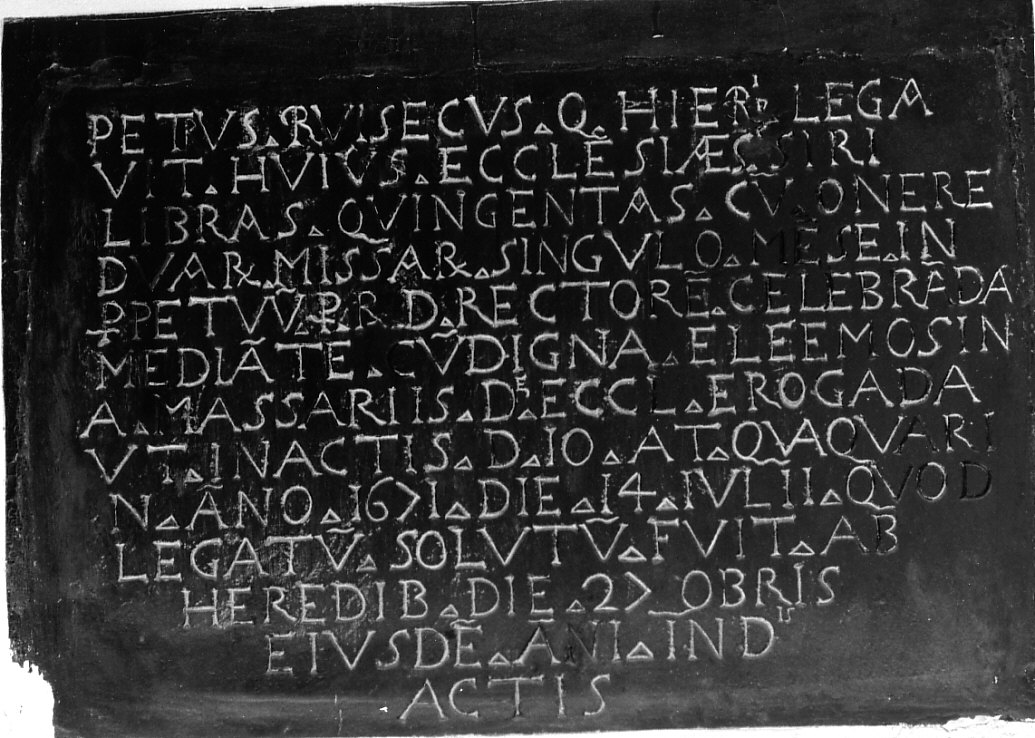 PETVS. RVISECVS. Q. HIER. LEGA
VIT. HVIVS. ECCLESIÆ SSIRI
LIBRAS. QVINGENTAS. CV̄. ONERE
DVAR&. MISSAR&. SINGVLO. MĒSE. IN
PPETVV̄. P. R. D. RECTORE. CELEBRĀDA
MEDIĀTE. CV̄DIGNA. ELEEMOSIN
A. MASSARIIS. D. ECCL. EROGADA
VT. INACTIS. D. IO. AT. QVAQVARI
N. ĀNO. 1671. DIE. 14. IVLII. QVOD
LEGATV̄. SOLVTV̄. FVIT. AB
HEREDIB. DIE. 27 OBRIS
EIVSDĒ. ANI. IND
ACTIS